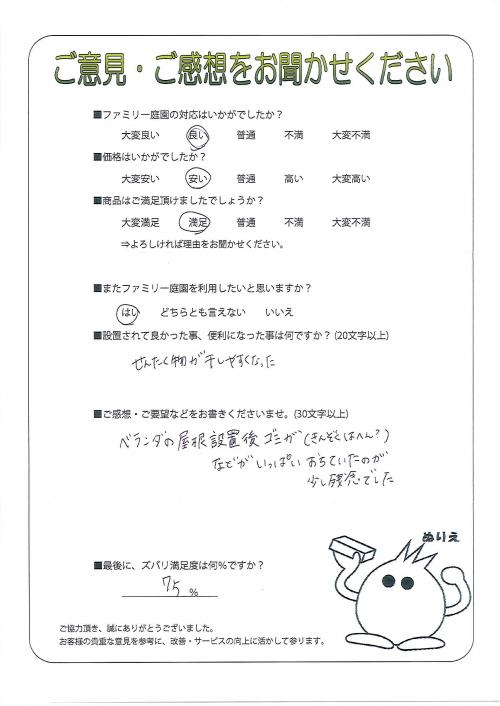 ご意見・ご感想をお聞かせください
■ファミリー庭園の対応はいかがでしたか？
大変良い 良い 普通 不満 大変不満
■価格はいかがでしたか？
大変安い 安い 普通 高い 大変高い
■商品はご満足頂けましたでしょうか？
大変満足 満足 普通 不満 大変不満
⇒よろしければ理由をお聞かせください。
■またファミリー庭園を利用したいと思いますか？
はい どちらとも言えない いいえ
■設置されて良かった事、便利になった事は何ですか？(20文字以上)
せんたく物が干しやすくなった
■ご感想・ご要望などをお書きくださいませ。(30文字以上)
ベランダの屋根設置後ゴミが(きんぞくはへん？)
などがいっぱいおちていたのが
少し残念でした
ぬりえ
■最後に、ズバリ満足度は何％ですか？
75 %
ご協力頂き、誠にありがとうございました。
お客様の貴重な意見を参考に、改善・サービスの向上に活かして参ります。